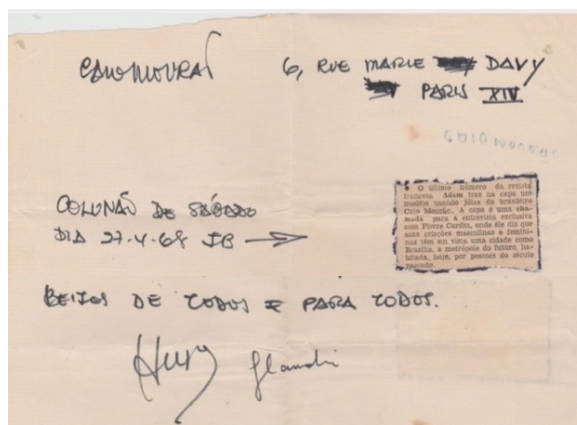 CAIO MOURÃO
6, RUE MARIE DAVY
PARIS XIV
CAIO MOURÃO
O último número da revista
francesa Adam traz na capa um
modêlo usando jóias do brasileiro
Caio Mourão. A capa é uma cha-
mada para a entrevista exclusiva
com Pierre Cardin, onde êle diz que
suas criações masculinas e femini-
nas têm em vista uma cidade como
Brasília, a metrópole do futuro, ha-
bitada, hoje, por pessoas do século
passado.
COLUNÃO DE SÁBADO
DIA 27.4.68 JB
BEIJOS DE TODOS E PARA TODOS.